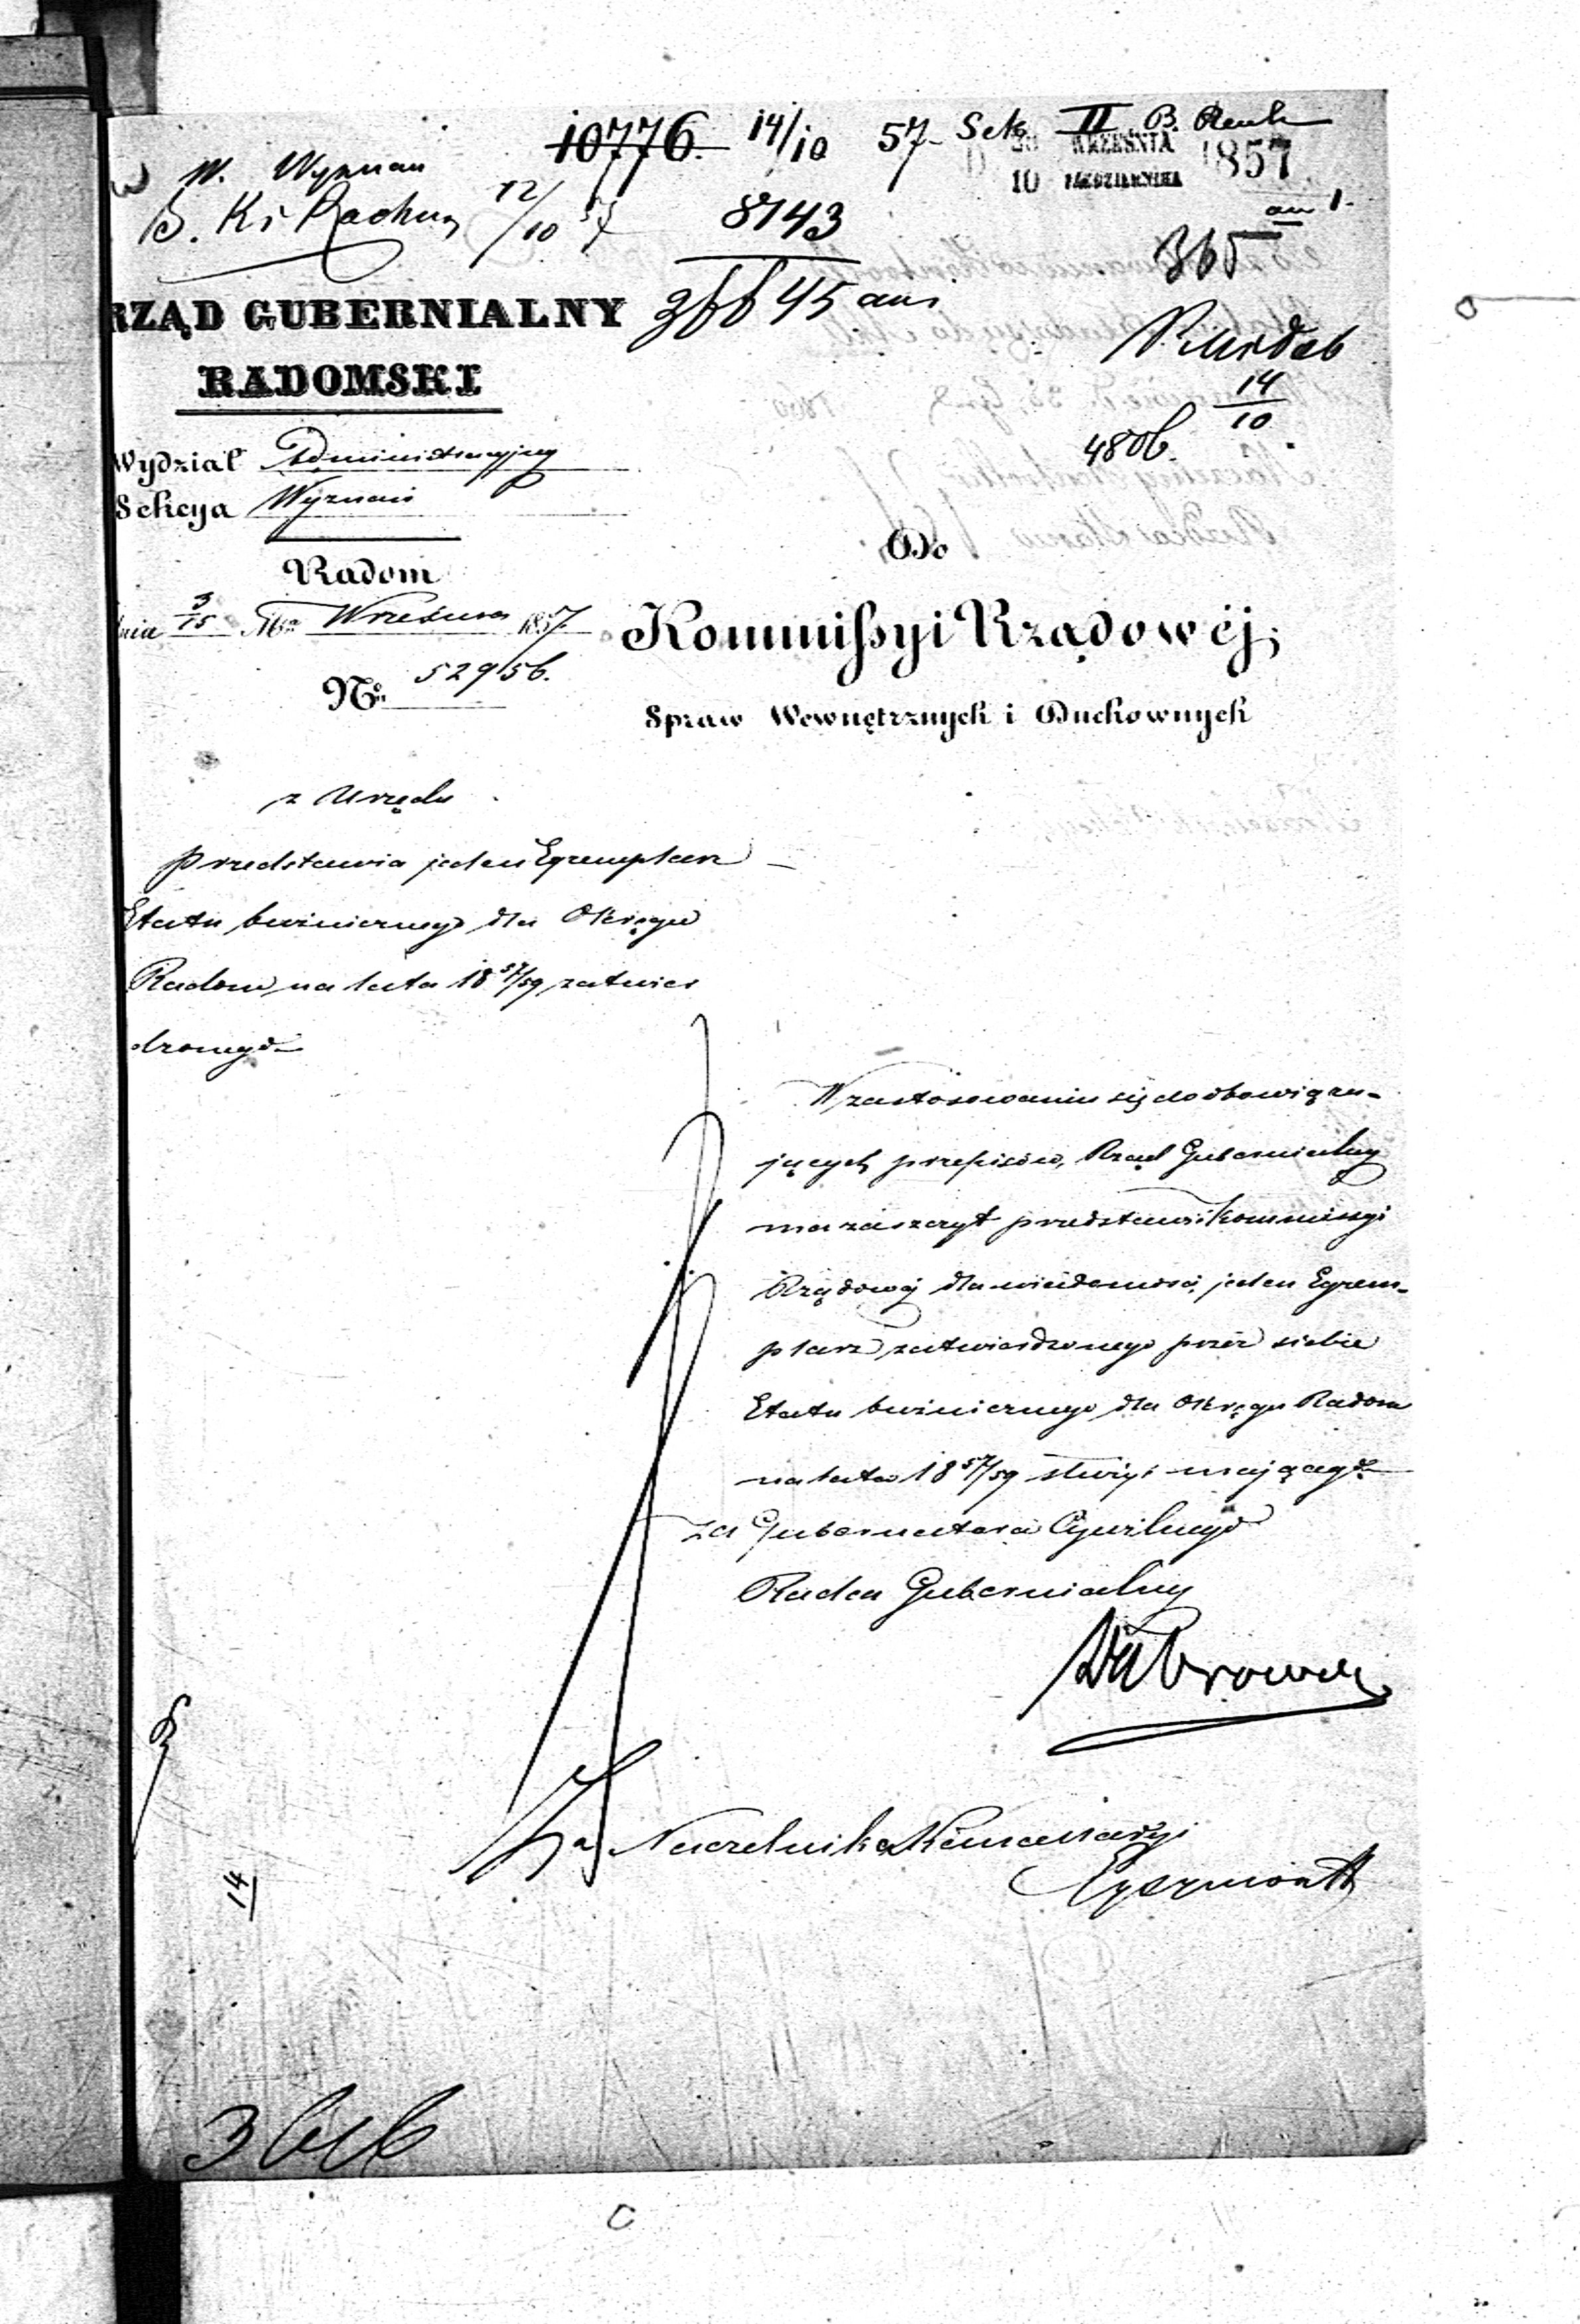 10776. 14/10 57 Sek II B.
W. Wyznan
28 WRZEŚNIA 1857
10 PAŹDZIERNIKA
B. K i Rachun 12/10 57
8743
an 1.
365
45 an 1
RZĄD GUBERNIALNY
RADOMSKI
14/10
4806.
Wydział Administracyjny
Sekcya Wyznań
Radom
Do
dnia 3/15 Mca Września 1857
Kommissyi Rządowéj,
No 52956.
Spraw Wewnętrznych i Duchownych
z Urzędu
Przedstawia jeden Egzemplarz
Etatu bużnicznego dla Okręgu
Radom na lata 18 57/59 zatwier
dzonego
W zastosowaniu się do obowiązu-
jących przepisów, Rząd Gubernialny
ma zaszczyt przedstawić Kommissyi
Rządowéj dla wiadomości jeden Egzem-
plarz zatwierdzonego przez siebie
Etatu bużnicznego dla Okręgu Radom
na lata 18 57/59 służyć mającego
za Gubernatora Cywilnego
Radca Gubernialny
Za Naczelnika Kancellaryi
14